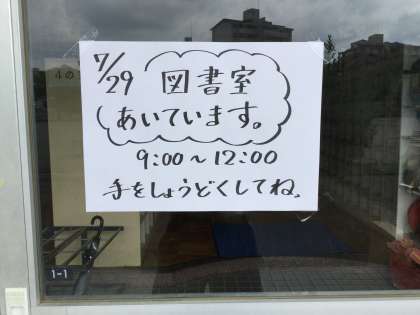 7/29 図書室
あいています。
9:00～12:00
手をしょうどくしてね。
4の
1-1